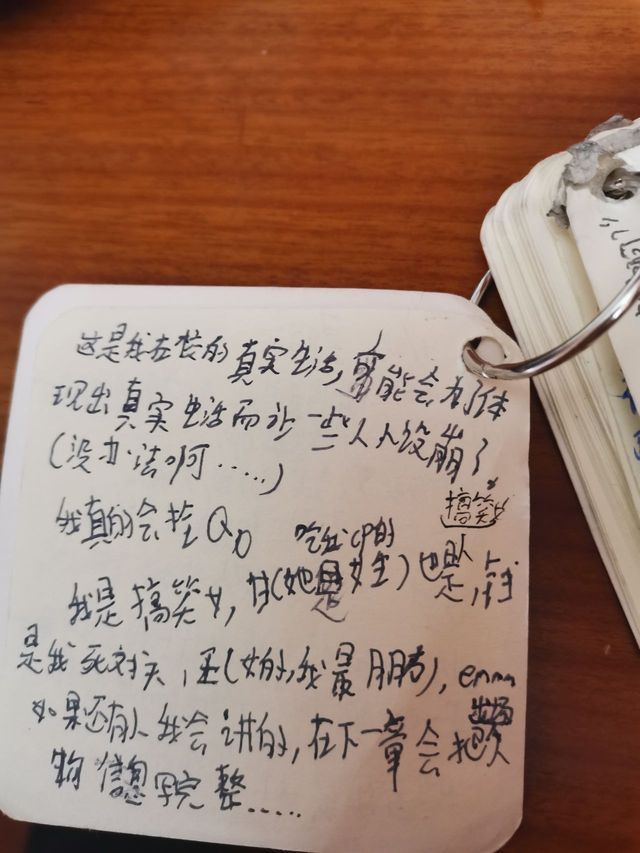 这是我在校的真实生活，可能会为了体
现出真实生活而让一些人人设崩了
（没办法啊……）
我真的会挂QQ
搞笑
吃我cp的
我是搞笑女，甘（她是女生）也是，钱
是我死对头，王（女的，我最好朋友），emmm
出场
如果还有人我会讲的，在下一章会把人
物信息写完整……